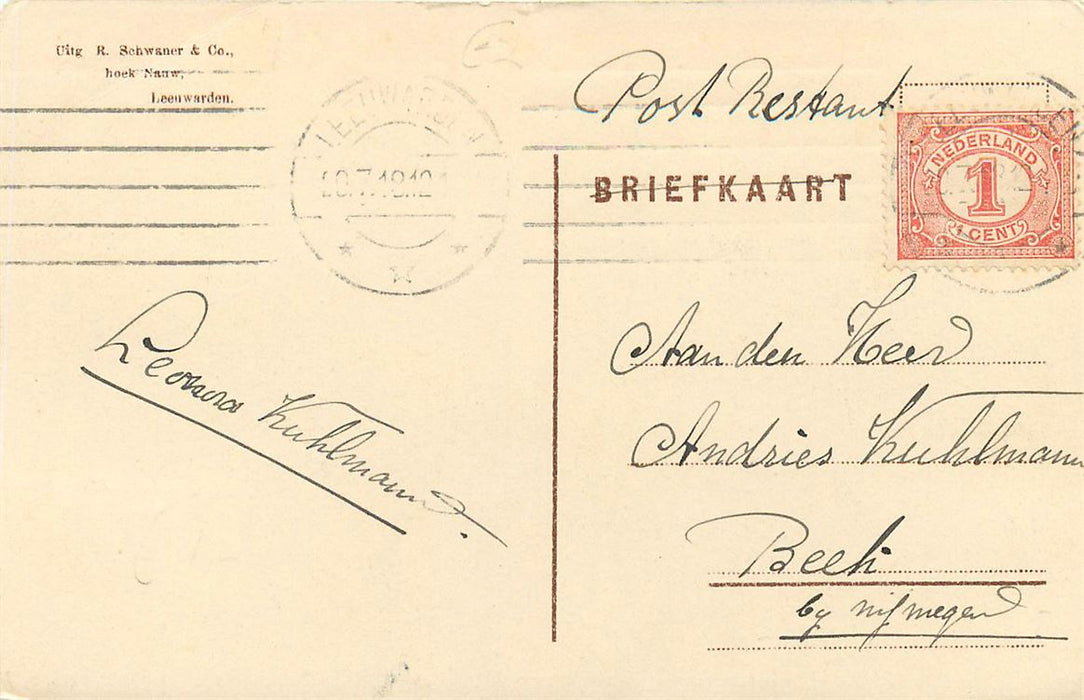 Uitg R. Schwaner & Co.,
hoek Nauw,
Leeuwarden.
LEEUWARDEN
Post Restant
BRIEFKAART
NEDERLAND
1
1 CENT
Aan den Heer
Andries Kuhlmann
Beek
by nijmegen
Leonora Kuhlmann.